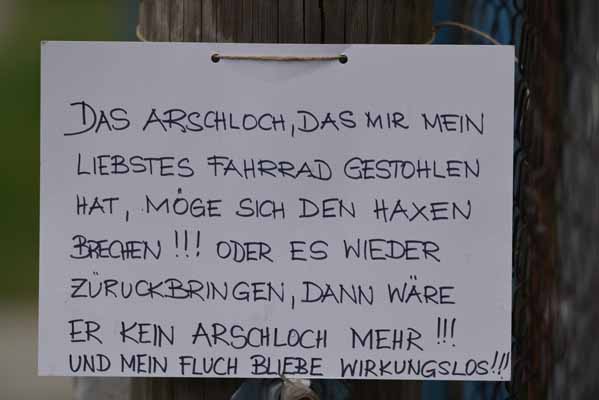 DAS ARSCHLOCH, DAS MIR MEIN
LIEBSTES FAHRRAD GESTOHLEN
HAT, MÖGE SICH DEN HAXEN
BRECHEN !!! ODER ES WIEDER
ZÜRUCKBRINGEN, DANN WÄRE
ER KEIN ARSCHLOCH MEHR !!!
UND MEIN FLUCH BLIEBE WIRKUNGSLOS!!!